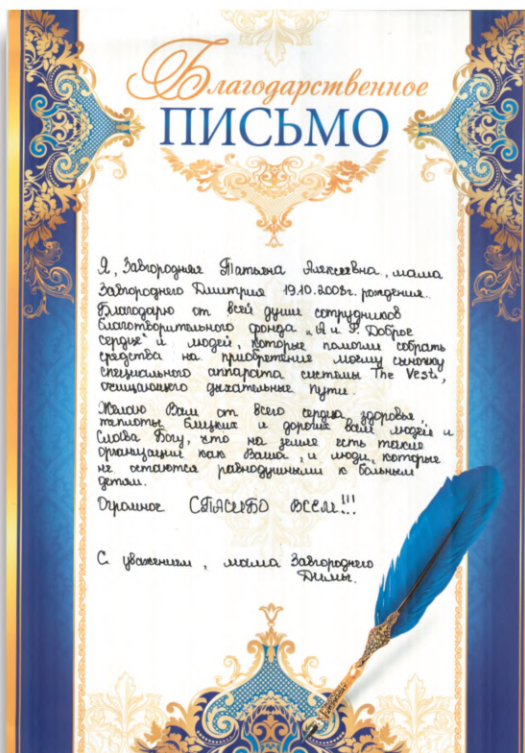 Благодарственное
ПИСЬМО
Я, Завгородняя Татьяна Алексеевна, мама
Завгороднего Дмитрия 19.10.2008г. рождения.
Благодарю от всей души сотрудников
благотворительного фонда „Я и Ў. Доброе
сердце" и людей, которые помогли собрать
средства на приобретение моему сыночку
специального аппарата системы The Vest,
очищающего дыхательные пути.
Желаю Вам от всего сердца, здоровья,
теплоты, близких и дорогих вам людей и
Слава Богу, что на земле есть такие
организации как Ваша, и люди, которые
не остаются равнодушными к больным
детям.
Огромное СПАСИБО ВСЕМ!!!
С уважением, мама Завгороднего
Димы.